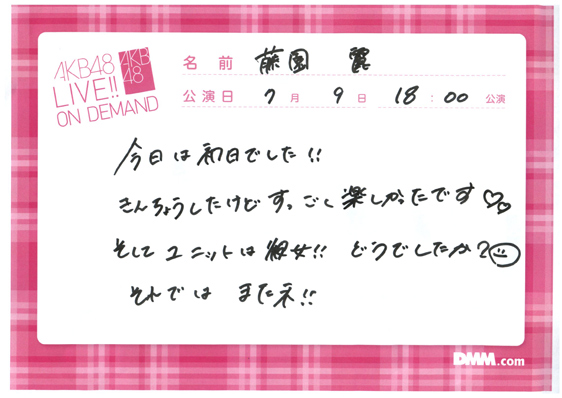 AKB48
LIVE!!
ON DEMAND
AKB
48
名前 藤園 麗
公演日 7月 9日 18:00 公演
今日は初日でした!!
きんちょうしたけどすっごく楽しかったです♡♡
そしてユニットは!! どうでしたか?
それでは またネ!!
DMM.com